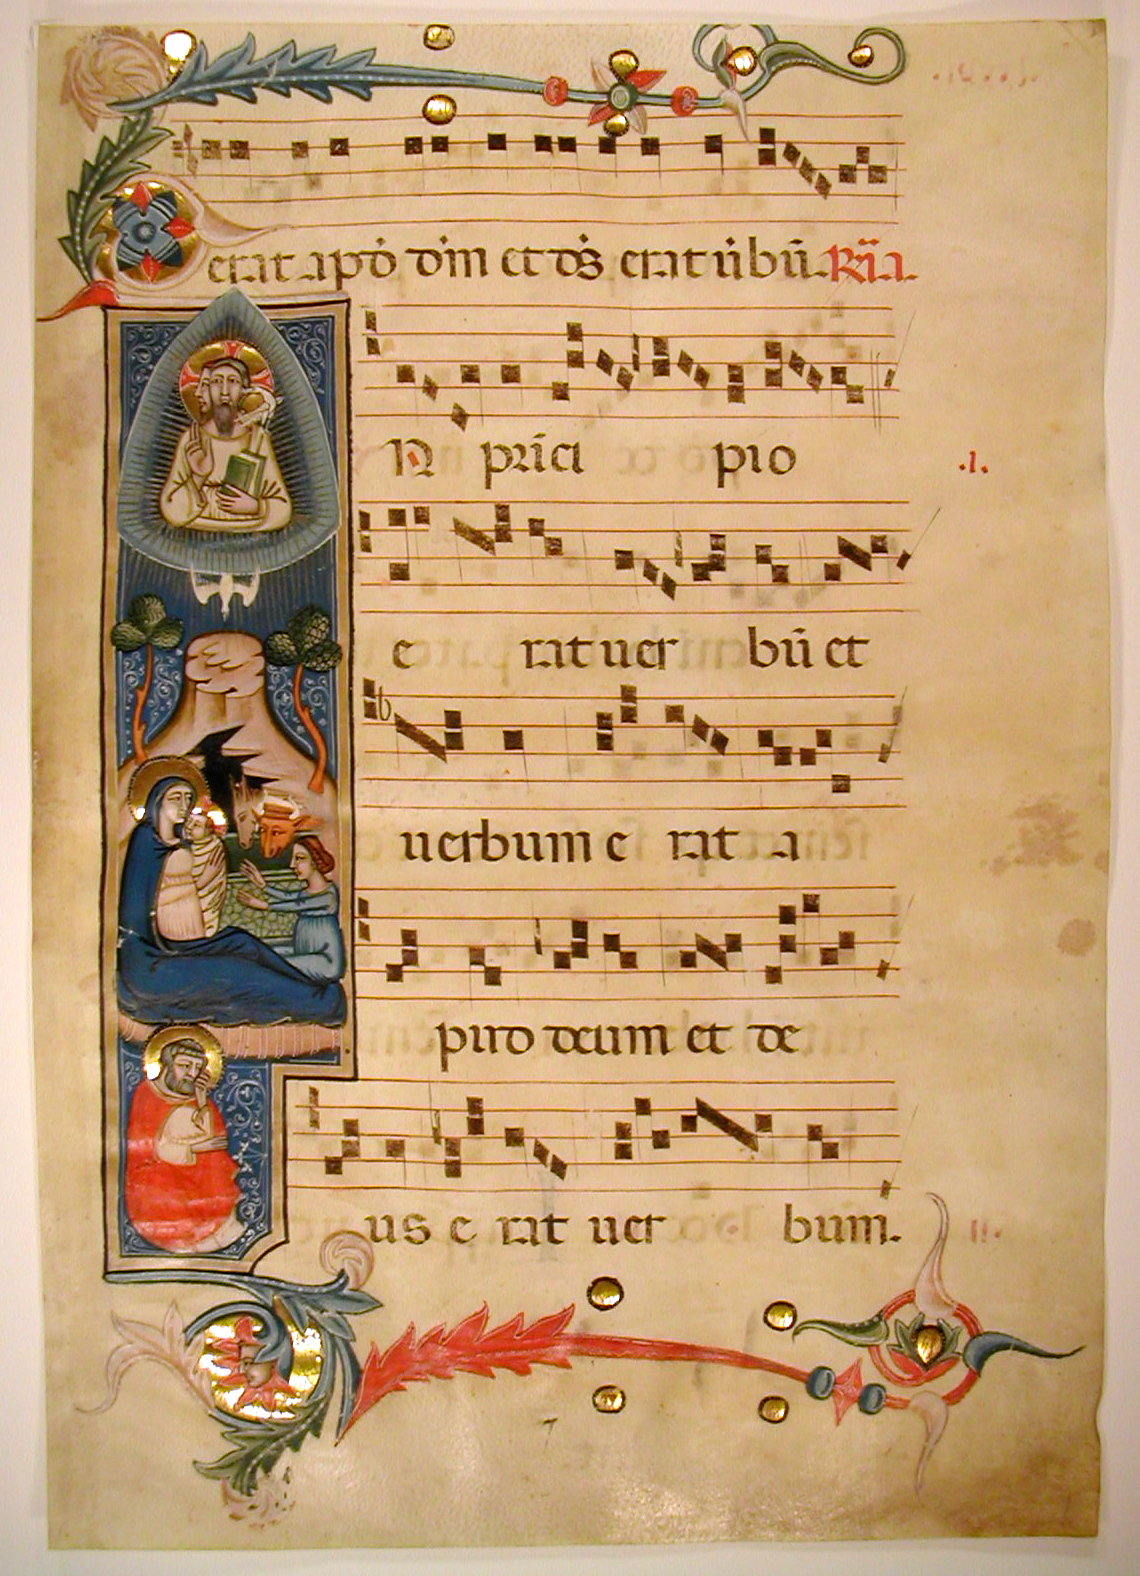 erat apđ dm̄ et ds̄ erat ūbū Rīa
IN prīci pio .I.
e rat uer bū et
uerbum e rat a
pud deum et de
us e rat uer bum. II.